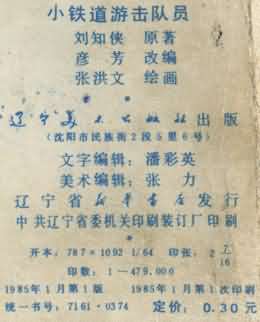 小铁道游击队员
刘知侠 原著
彦芳 改编
张洪文 绘画
辽宁美术出版社出版
(沈阳市民族街2段5里6号)
文字编辑：潘彩英
美术编辑：张力
辽宁省新华书店发行
中共辽宁省委机关印刷装订厂印刷
开本：787×1092 1/64 印张：2 7/16
印数：1—479,000
1985年1月第1版 1985年1月第1次印刷
统一书号：7161·0374 定价：0.30元